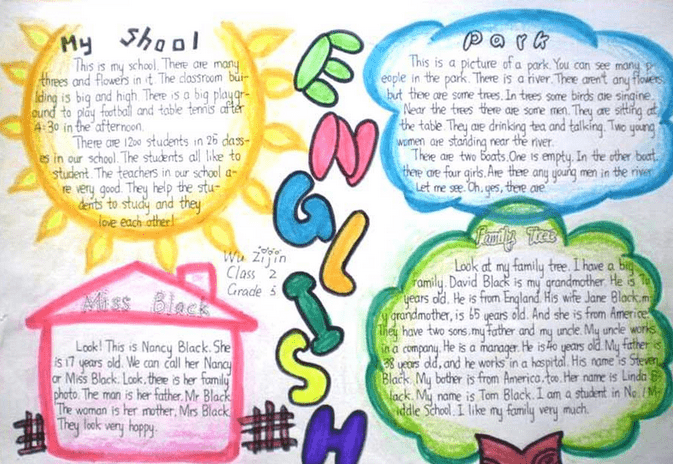 My Shool
This is my school. There are many
threes and flowers in it. The classroom bui-
lding is big and high. There is a big playgr-
ound to play football and table tennis after
4:30 in the afternoon.
There are 1200 students in 25 class-
es in our school. The students all like to
student. The teachers in our school a-
re very good. They help the stu-
dents to study and they
love each other!
ENGLISH
Park
This is a picture of a park. You can see many p-
eople in the park. There is a river. There aren't any flowers,
but there are some trees. In trees some birds are singine.
Near the trees there are some men. They are sitting at
the table. They are drinking tea and talking. Two young
women are standing near the river.
There are two boats. One is empty. In the other boat
there are four girls. Are there any young men in the river
Let me see. Oh, yes, there are
Wu Zijin
Class 2
Grade 3
Miss Black
Look! This is Nancy Black. She
is 17 years old. We can call her Nancy
or Miss Black. Look, there is her family
photo. The man is her father, Mr Black
The woman is her mother, Mrs Black.
They look very happy.
Family Tree
Look at my family tree. I have a big
family. David Black is my grandmother. He is
years old. He is from England. His wife Jane Black, m
y grandmother, is 65 years old. And she is from Americe.
They have two sons, my father and my uncle. My uncle works
in a company. He is a manager. He is 40 years old. My father is
38 years old, and he works in a hospital. His name is Steven
Black. My bother is from America, too. Her name is Linda B
lack. My name is Tom Black. I am a student in No. 1 M
iddle School. I like my family very much.